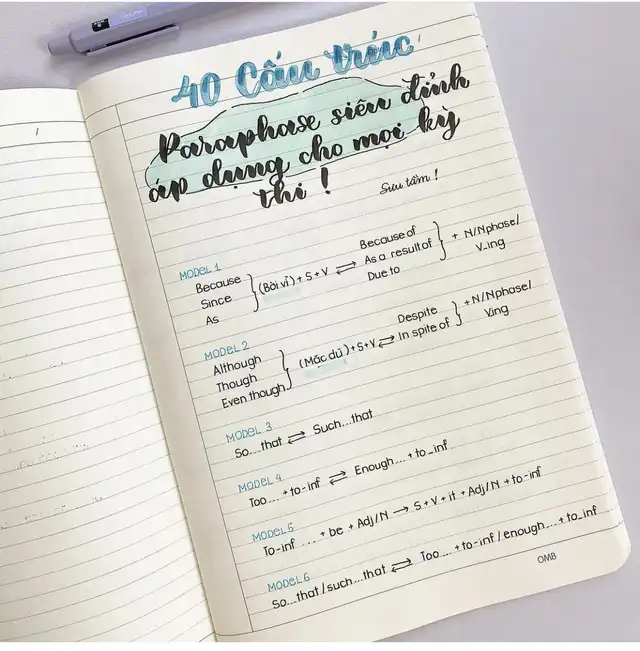 40 Cấu trúc
Paraphase siêu đỉnh
áp dụng cho mọi kỳ
thi !
Sưu tầm !
MODEL 1
Because
Since
As
(Bởi vì) + S + V ⇌
Because of
As a result of
Due to
+ N/Nphase/
V_ing
MODEL 2
Although
Though
Even though
(Mặc dù) + S + V ⇌
Despite
In spite of
+ N/Nphase/
Ving
MODEL 3
So...that ⇌ Such...that
MODEL 4
Too... + to-inf ⇌ Enough... + to_inf
MODEL 5
To-inf ... + be + Adj/N → S + V + it + Adj/N + to-inf
MODEL 6
So...that / such...that ⇌ Too... + to-inf / enough... + to_inf
OMB